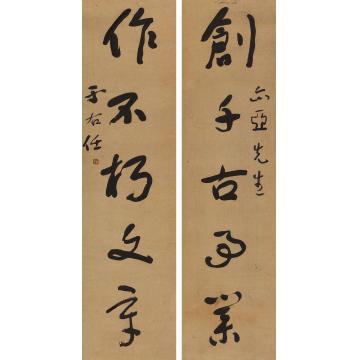 創千古事業
六亞先生
作不朽文章
于右任